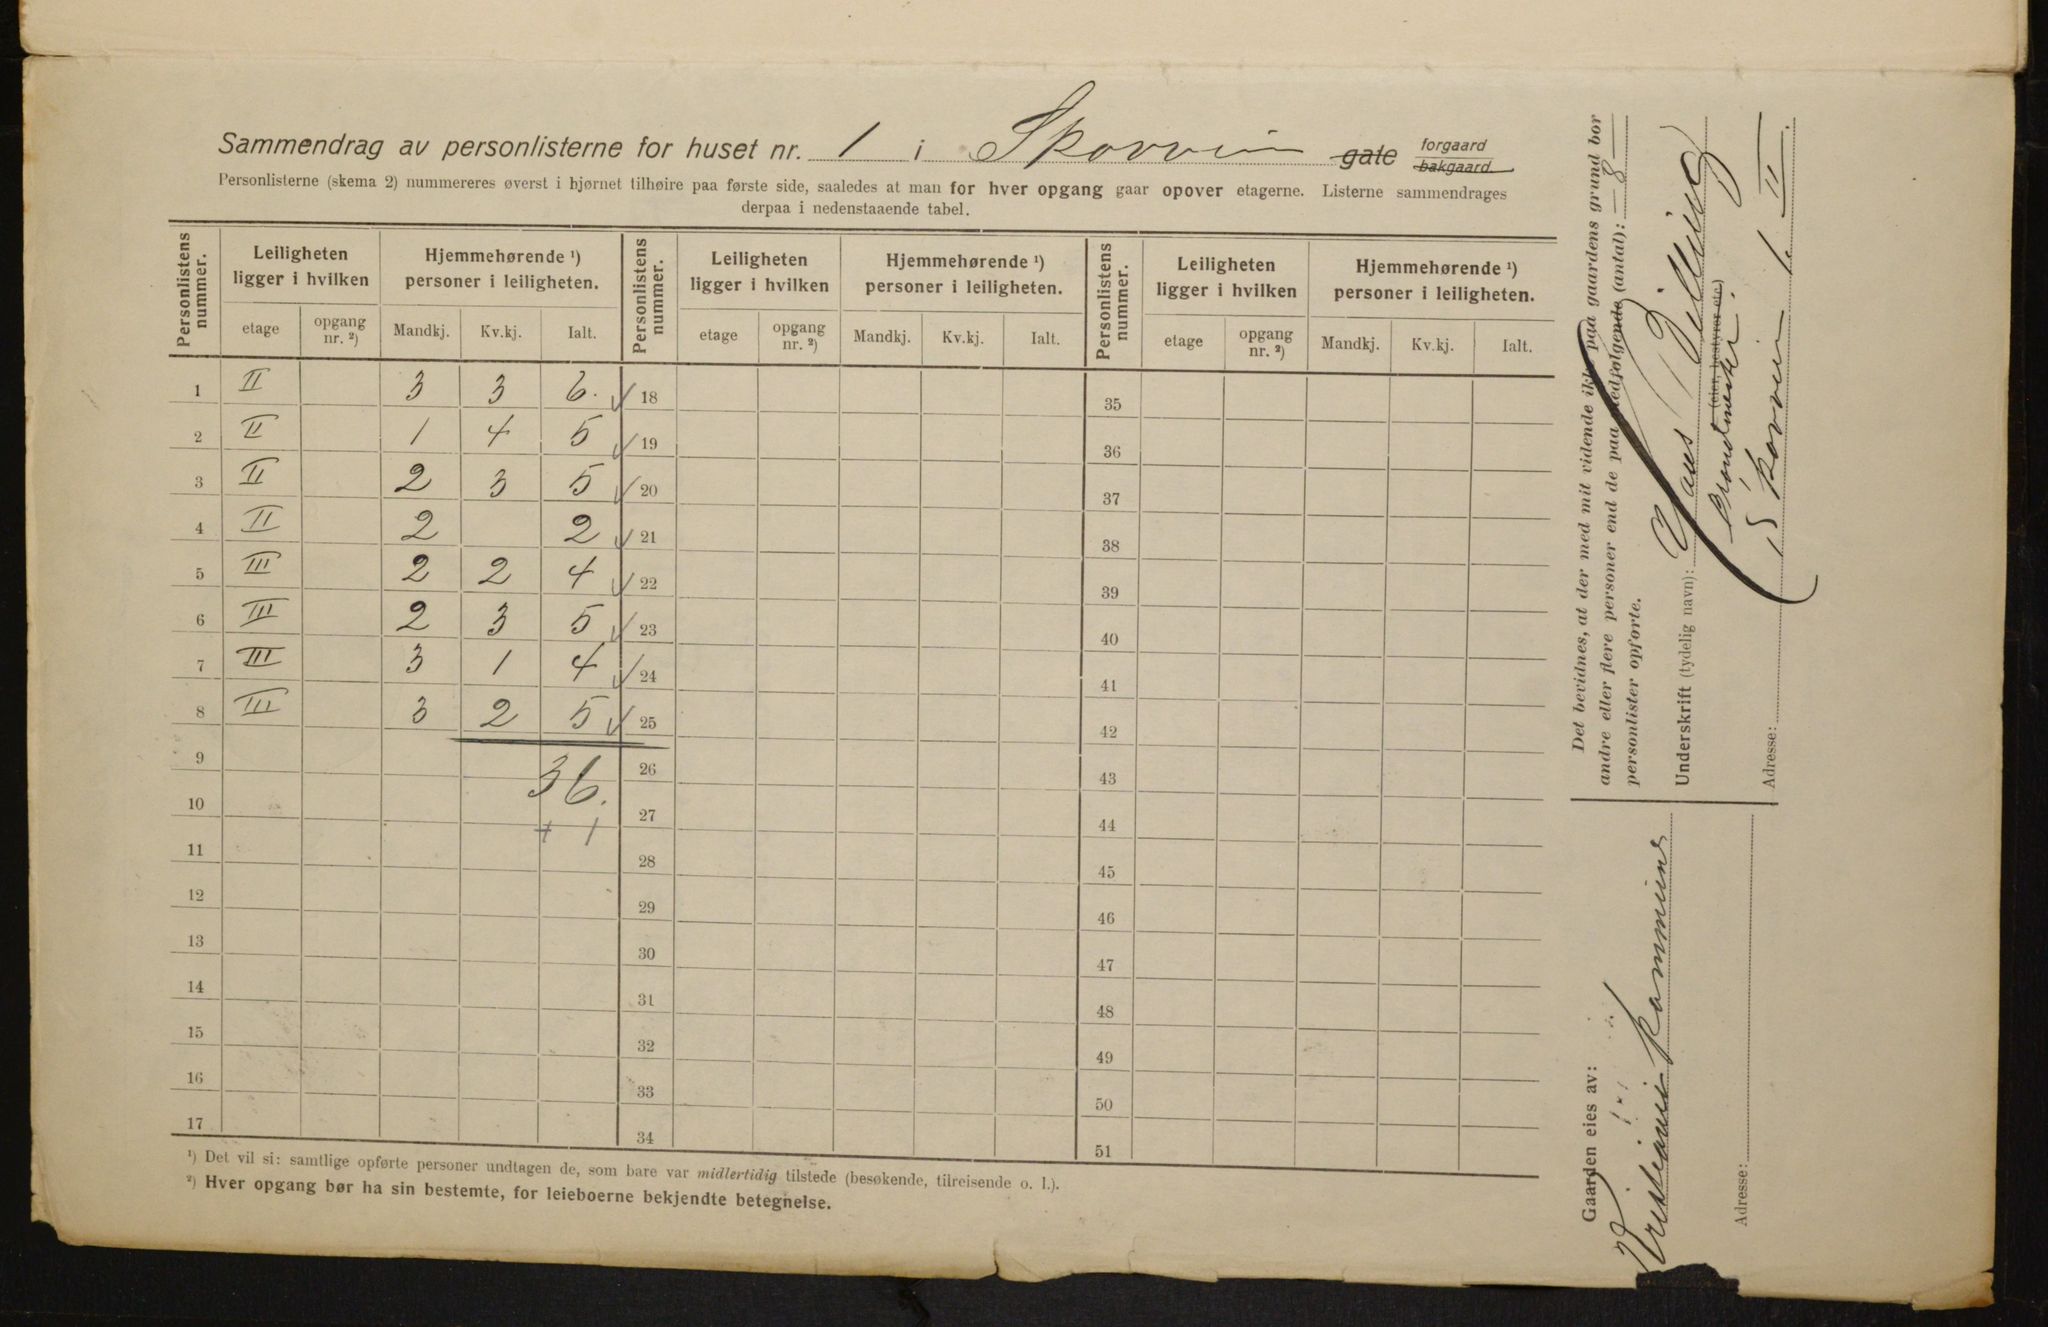 Sammendrag av personlisterne for huset nr. 1 i Skovvin gate forgaard bakgaard.
Personlisterne (skema 2) nummereres øverst i hjørnet tilhøire paa første side, saaledes at man for hver opgang gaar opover etagerne. Listerne sammendrages
derpaa i nedenstaaende tabel.
Personlistens nummer. Leiligheten ligger i hvilken Hjemmehørende ¹) personer i leiligheten. Personlistens nummer. Leiligheten ligger i hvilken Hjemmehørende ¹) personer i leiligheten. Personlistens nummer. Leiligheten ligger i hvilken Hjemmehørende ¹) personer i leiligheten.
etage opgang nr. ²) Mandkj. Kv.kj. Ialt. etage opgang nr. ²) Mandkj. Kv.kj. Ialt. etage opgang nr. ²) Mandkj. Kv.kj. Ialt.
1 II 3 3 6. 18 35
2 II 1 4 5 19 36
3 II 2 3 5 20 37
4 II 2 2 21 38
5 III 2 2 4 22 39
6 III 2 3 5 23 40
7 III 3 1 4 24 41
8 III 3 2 5 25 42
9 36. 26 43
10 + 1 27 44
11 28 45
12 29 46
13 30 47
14 31 48
15 32 49
16 33 50
17 34 51
¹) Det vil si: samtlige opførte personer undtagen de, som bare var midlertidig tilstede (besøkende, tilreisende o. l.).
²) Hver opgang bør ha sin bestemte, for leieboerne bekjendte betegnelse.
Det bevidnes, at der med mit vidende ikke paa gaardens grund bor
andre eller flere personer end de paa medfølgende (antal): — 8 —
personlister opførte.
Underskrift (tydelig navn): Hans
(eier, bestyrer etc.)
Adresse: Skovvin 1. II
Gaarden eies av:
Kristiania Kommune
Adresse: